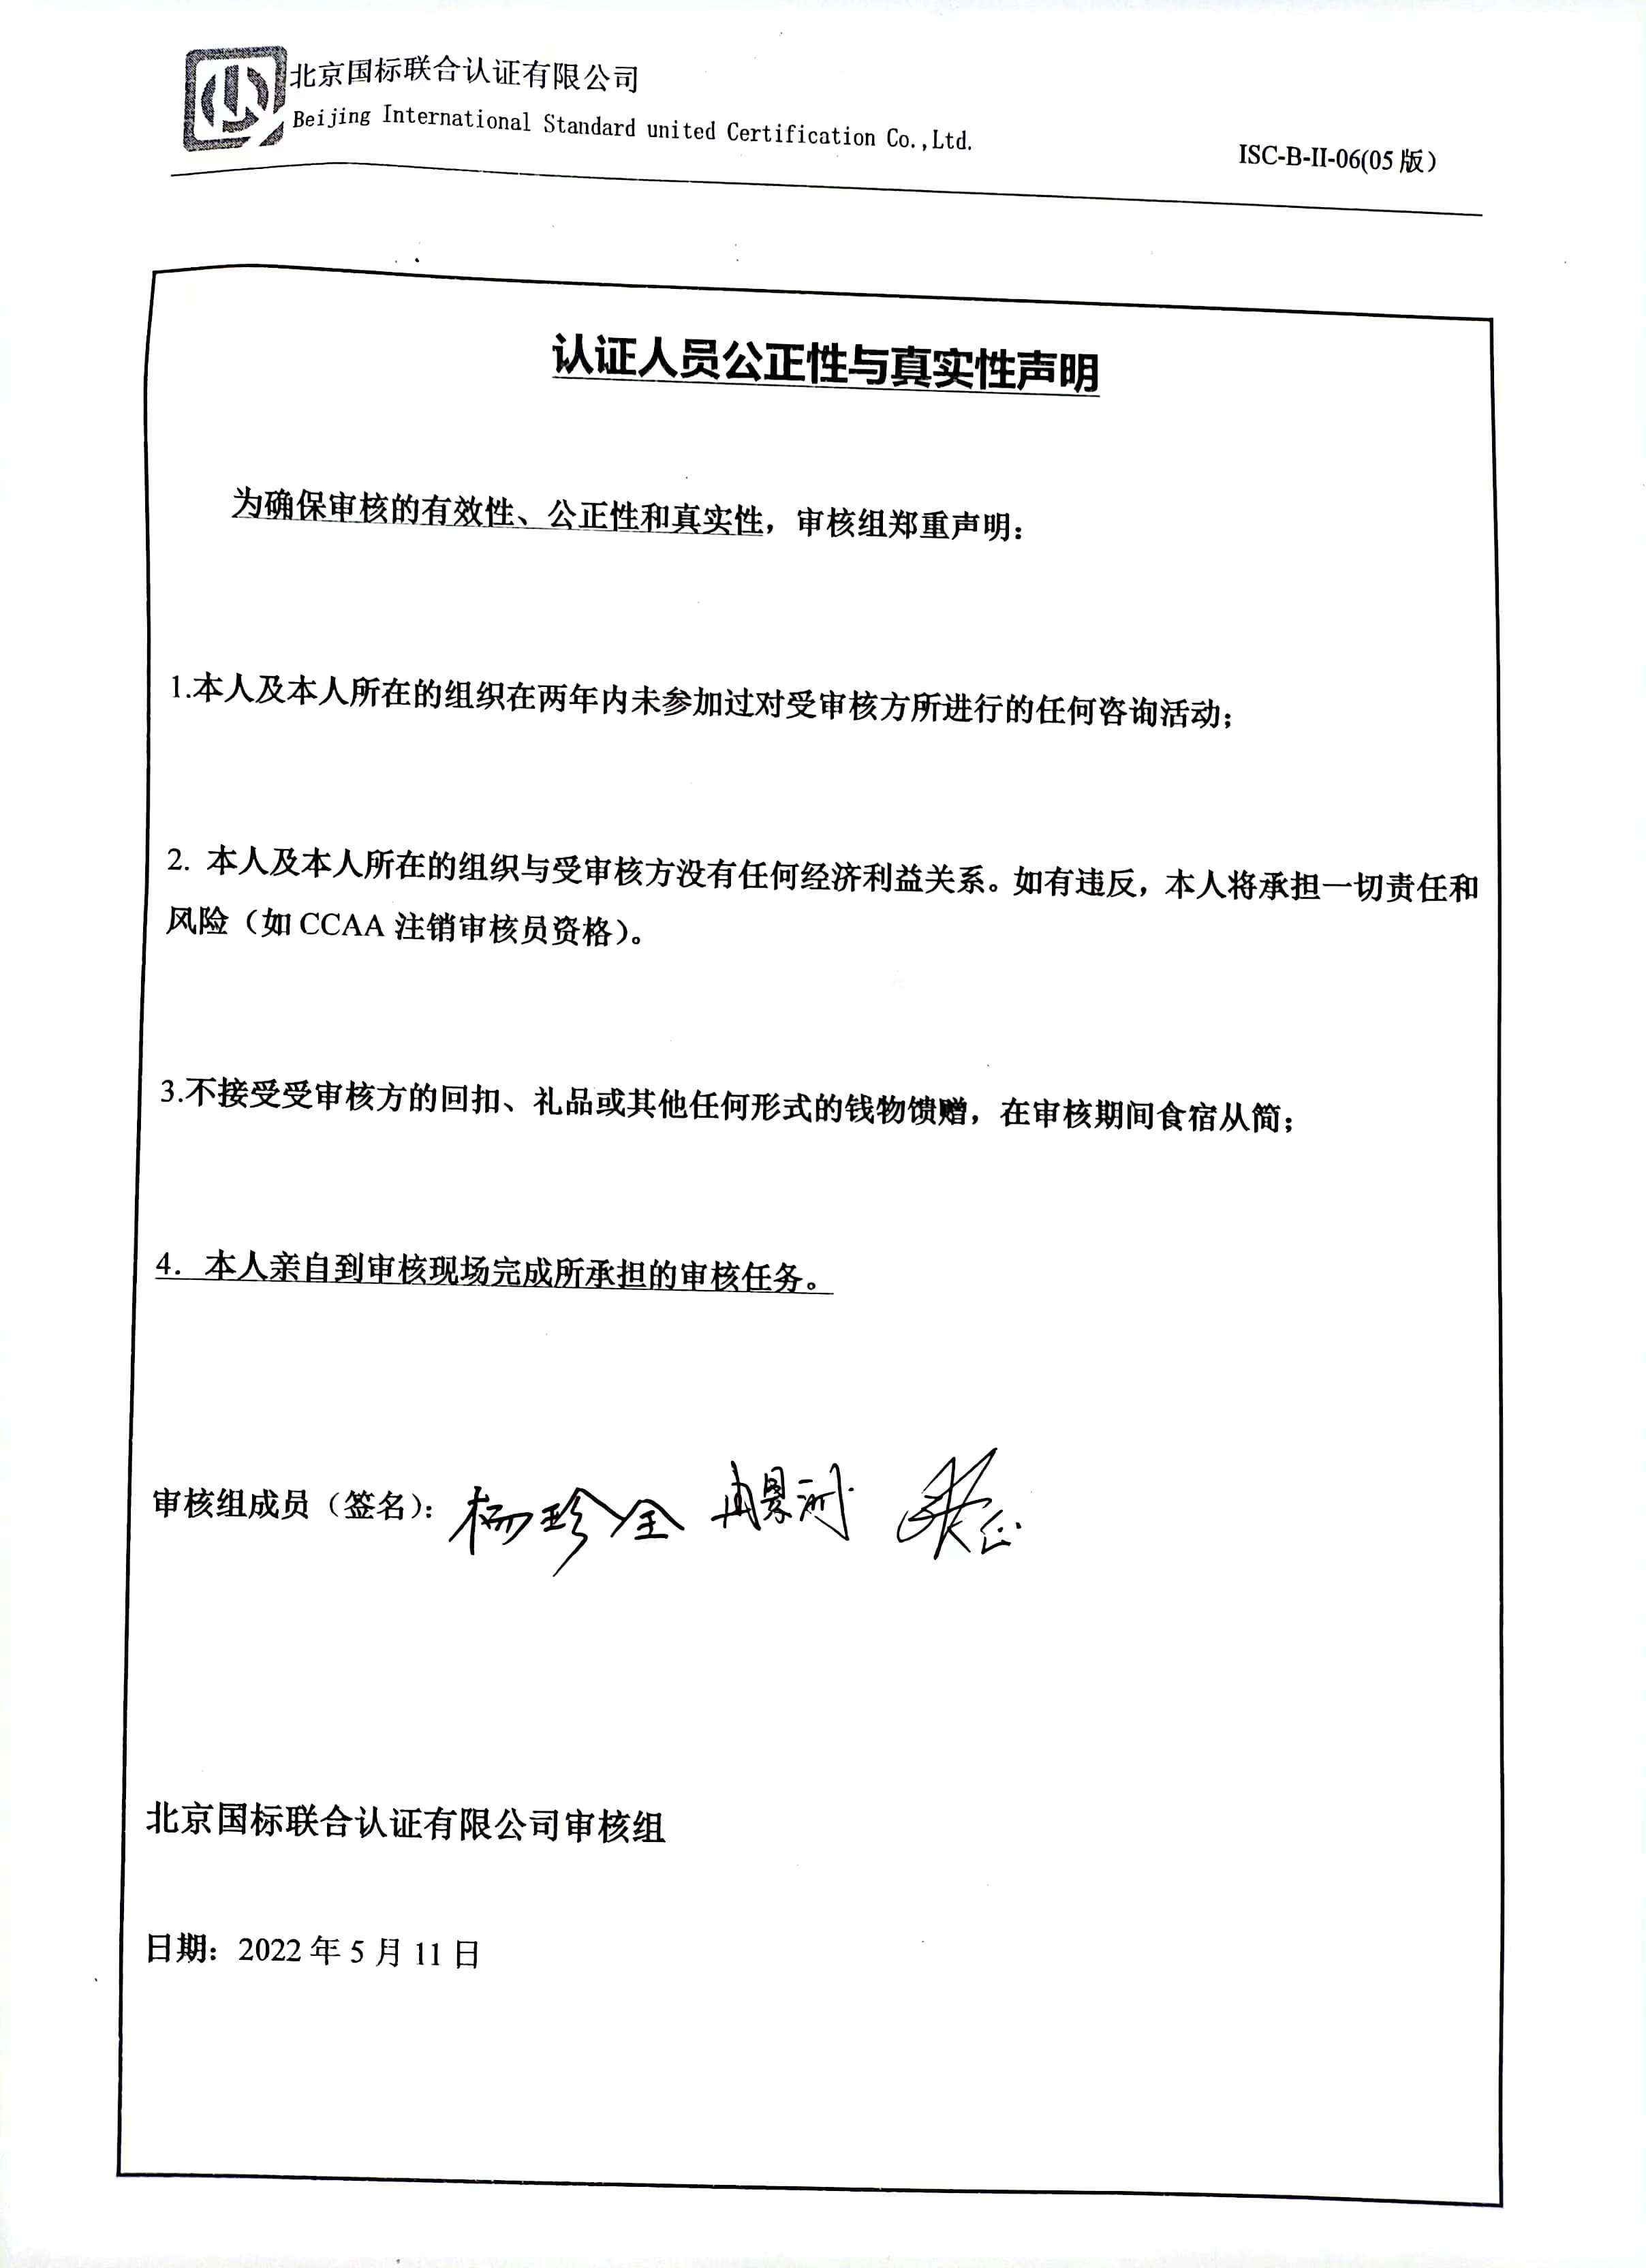 北京国标联合认证有限公司
Beijing International Standard united Certification Co.,Ltd.
ISC-B-II-06(05 版)
认证人员公正性与真实性声明
为确保审核的有效性、公正性和真实性，审核组郑重声明：
1.本人及本人所在的组织在两年内未参加过对受审核方所进行的任何咨询活动；
2. 本人及本人所在的组织与受审核方没有任何经济利益关系。如有违反，本人将承担一切责任和
风险（如 CCAA 注销审核员资格）。
3.不接受受审核方的回扣、礼品或其他任何形式的钱物馈赠，在审核期间食宿从简；
4. 本人亲自到审核现场完成所承担的审核任务。
审核组成员（签名）：杨珍全
北京国标联合认证有限公司审核组
日期：2022 年 5 月 11 日